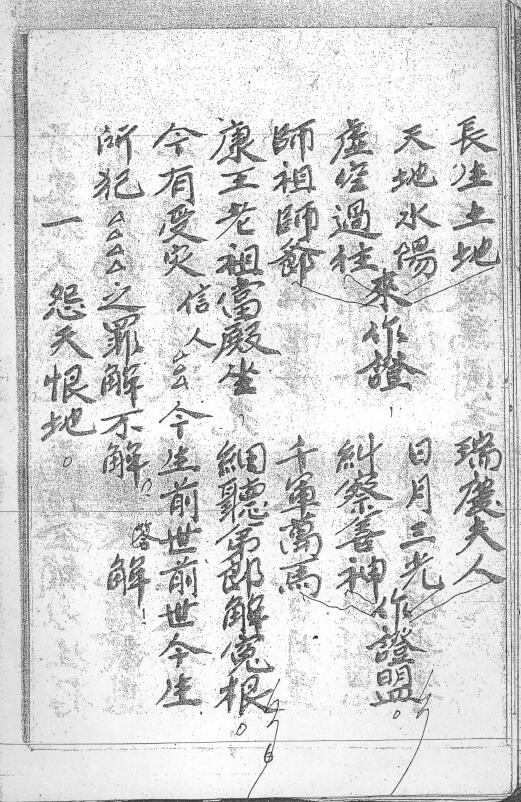 長生土地 瑞慶夫人
天地水陽 日月三光
來作證 作證盟。
虛空過往 糾察善神
師祖師爺 千軍萬馬
康王老祖當殿坐 細聽弟郎解冤根。
今有受灾信人△云今生前世前世今生
所犯△△△△之罪解不解。答解!
一 怨天恨地。